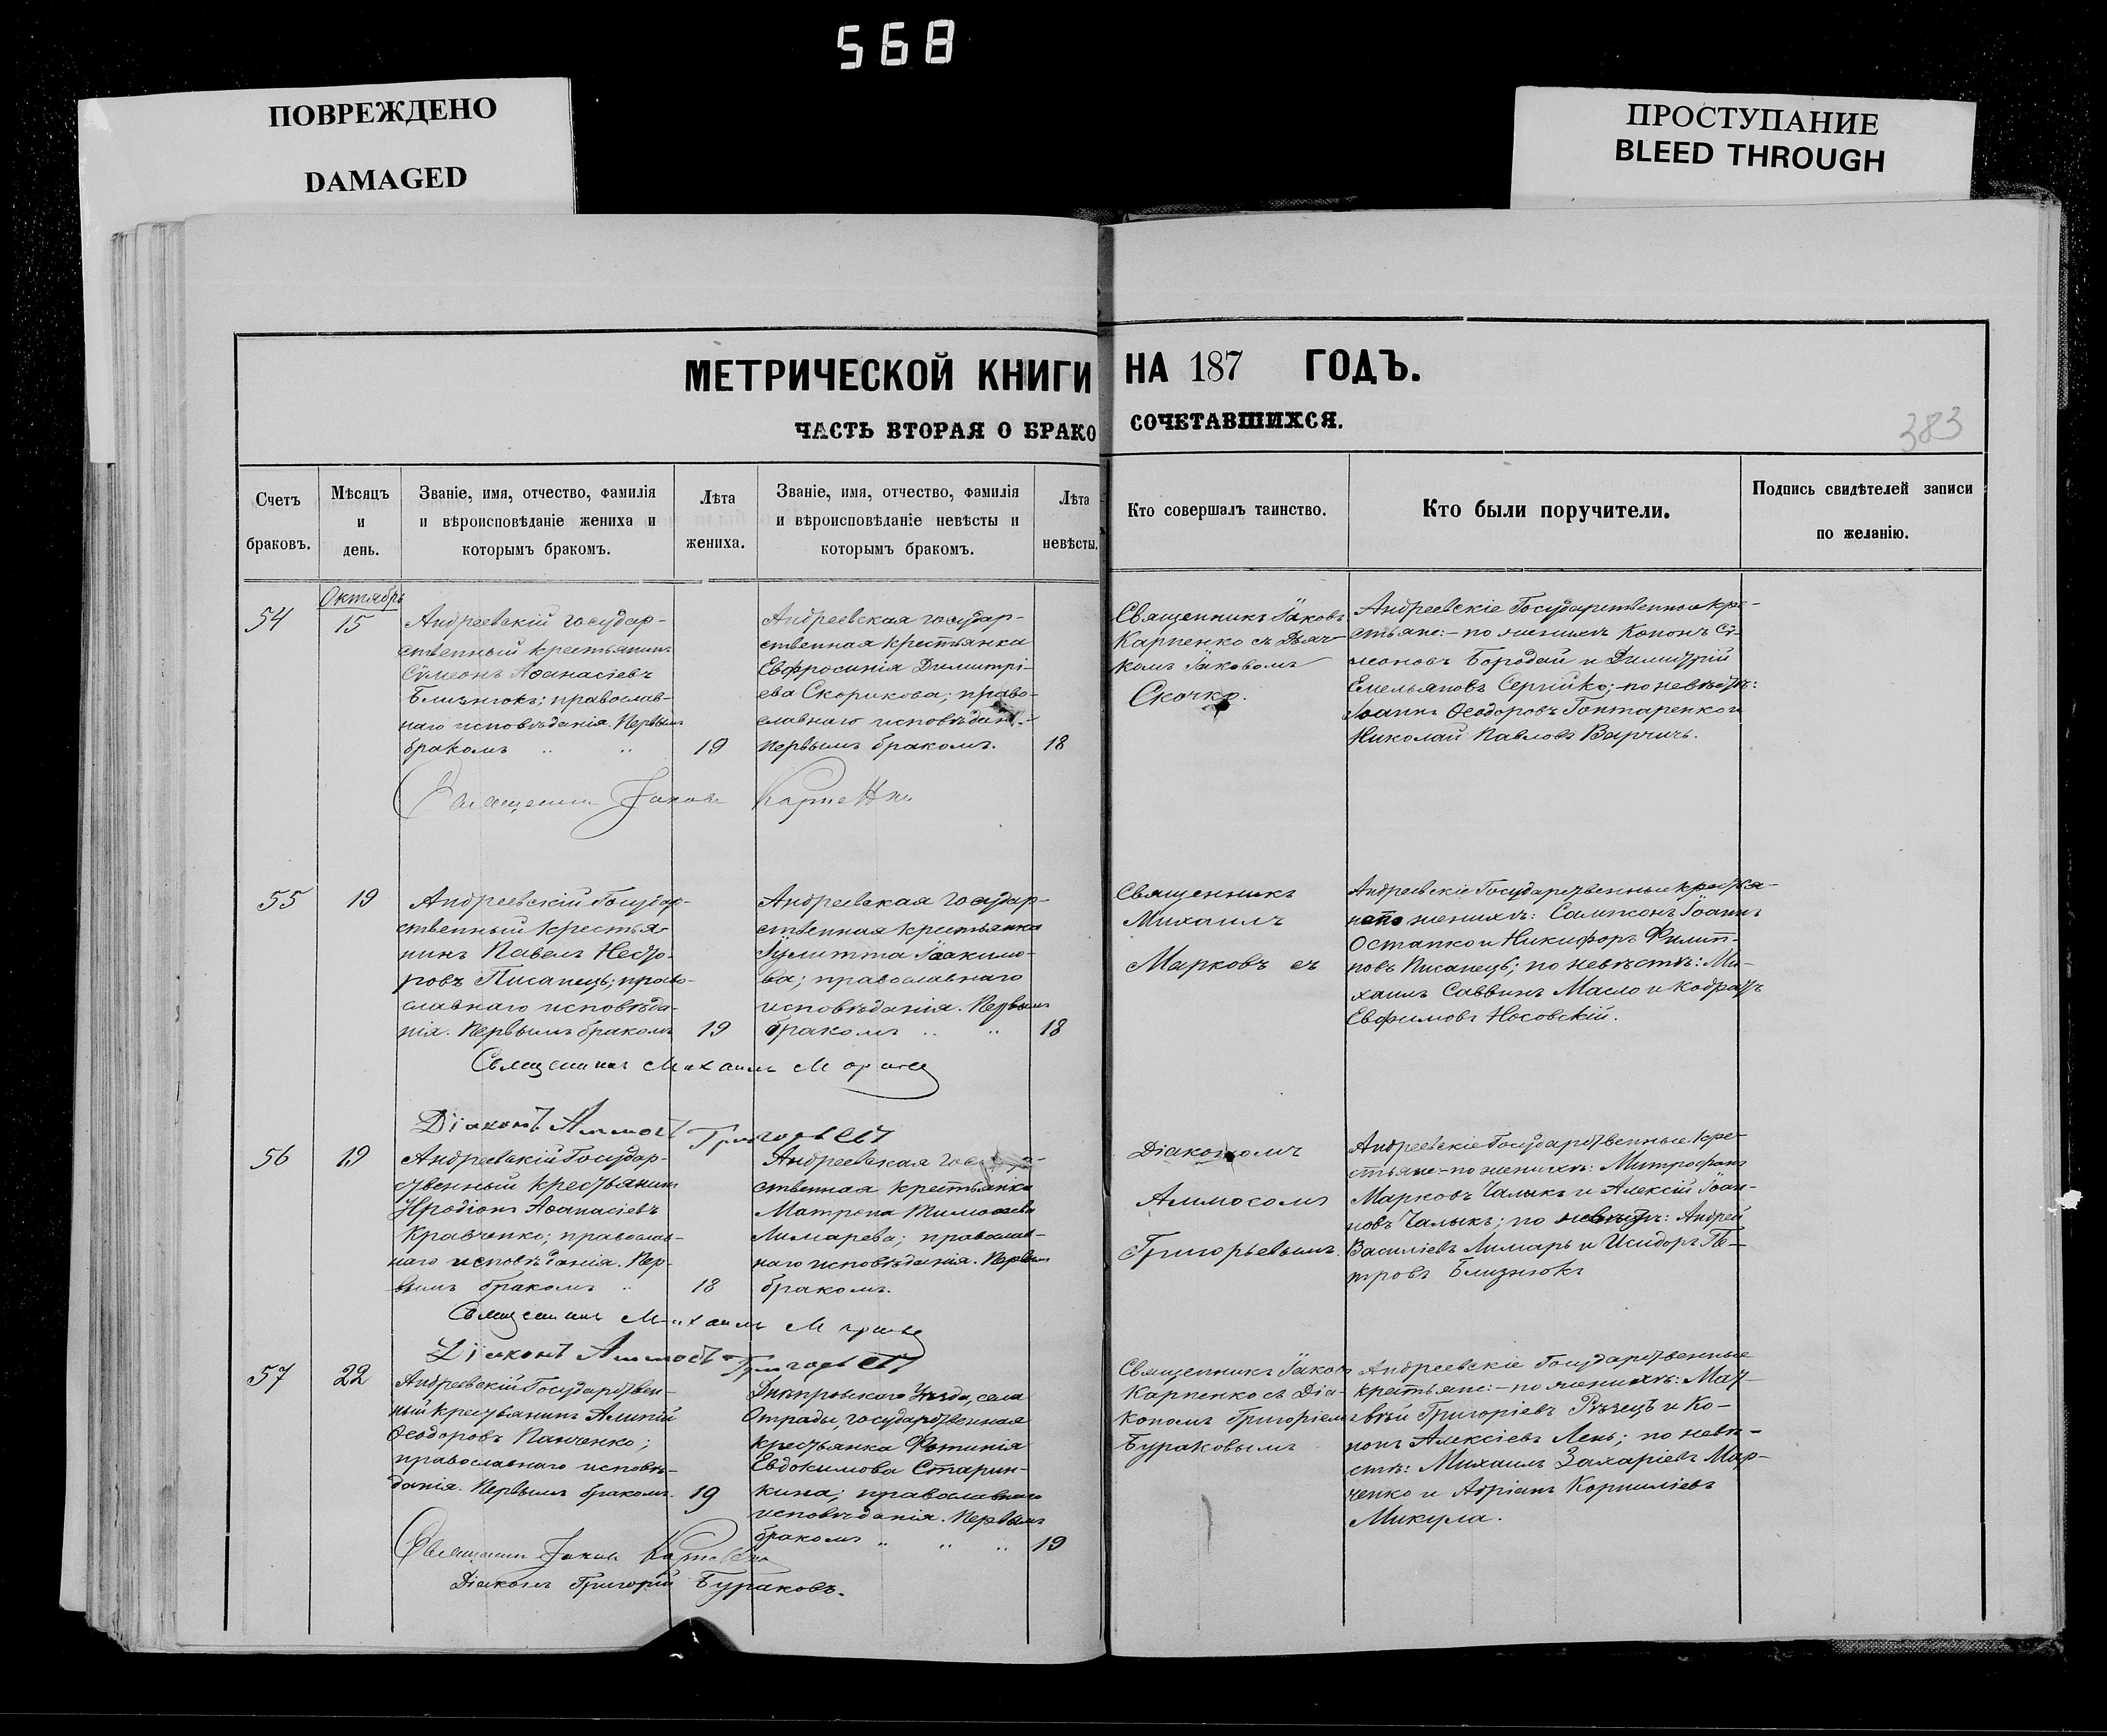 568
ПОВРЕЖДЕНО
DAMAGED
ПРОСТУПАНИЕ
BLEED THROUGH
МЕТРИЧЕСКОЙ КНИГИ НА 187 ГОДЪ.
ЧАСТЬ ВТОРАЯ О БРАКОСОЧЕТАВШИХСЯ.
383
Счетъ
браковъ.
Мѣсяцъ
и
день.
Званіе, имя, отчество, фамилія
и вѣроисповѣданіе жениха и
которымъ бракомъ.
Лѣта
жениха.
Званіе, имя, отчество, фамилія
и вѣроисповѣданіе невѣсты и
которымъ бракомъ.
Лѣта
невѣсты.
Кто совершалъ таинство.
Кто были поручители.
Подпись свидѣтелей записи
по желанію.
Октябрь
54
15
Андреевскій государ-
ственный крестьянинъ
Сѵмеонъ Аѳанасіевъ
Близнюкъ; православ-
наго исповѣданія. Первымъ
бракомъ
19
Андреевская государ-
ственная крестьянка
Евфросинія Димитрі-
ева Скорикова; право-
славнаго исповѣдані-
Первымъ бракомъ.
18
Священникъ Іаковъ
Карпенко съ Дьяч-
комъ Іаковомъ
Скочко.
Андреевскіе Государственные кре-
стьяне:-по женихѣ Кононъ Сѵ-
меоновъ Бородай и Димитрій
Емельяновъ Сергійко; по невѣстѣ:
Іоаннъ Ѳеодоровъ Гонтаренко и
Николай Павловъ Варчичъ.
Священникъ Іаковъ Карпенко
55
19
Андреевскій Государ-
ственный крестья-
нинъ Павелъ Несто-
ровъ Писанецъ; право-
славнаго исповѣда-
нія. Первымъ бракомъ
19
Андреевская государ-
ственная крестьянка
Іулитта Іоакимо-
ва; православнаго
исповѣданія. Первымъ
бракомъ
18
Священникъ
Михаилъ
Марковъ съ
Андреевскіе Государственные крестья-
не по женихѣ: Сампсонъ Іоаннъ
Остапко и Никифоръ Филип-
повъ Писанецъ; по невѣстѣ: Ми-
хаилъ Саввинъ Масло и Кодратъ
Евфимовъ Носовскій.
Священникъ Михаилъ Марковъ
Діаконъ Аммосъ Григорьевъ
56
19
Андреевскій Государ-
ственный крестьянинъ
Иродіонъ Аѳанасіевъ
Кравченко; православ-
наго исповѣданія. Пер-
вымъ бракомъ
18
Андреевская
ственная крестьянка
Матрона Тимоѳеева
Лимарева; православ-
наго исповѣданія. Первымъ
бракомъ.
Діакономъ
Аммосомъ
Григорьевымъ.
Андреевскіе Государственные кре-
стьяне-по женихѣ: Митрофанъ
Марковъ Чалыкъ и Алексій Іоан-
новъ Чалыкъ; по невѣстѣ: Андрей
Василіевъ Лимарь и Исидоръ Пе-
тровъ Близнюкъ
Священникъ Михаилъ Марковъ
Діаконъ Аммосъ Григорьевъ
57
22
Андреевскій Государствен-
ный крестьянинъ Алипій
Ѳеодоровъ Панченко;
православнаго исповѣ-
данія. Первымъ бракомъ.
19
Днѣпровскаго Уѣзда, села
Отрады, государственная
крестьянка Фотинія
Евдокимова Старин-
кина; православнаго
исповѣданія. Первымъ
бракомъ
19
Священникъ Іаковъ
Карпенко съ Діа-
кономъ Григоріемъ
Бураковымъ
Андреевскіе Государственные
крестьяне:-по женихѣ: Мат-
вѣй Григоріевъ Рѣзецъ и Ко-
нонъ Алексіевъ Лень; по невѣ-
стѣ: Михаилъ Захаріевъ Мар-
ченко и Адріанъ Корниліевъ
Микула.
Священникъ Іаковъ Карпенко
Діаконъ Григорій Бураковъ.